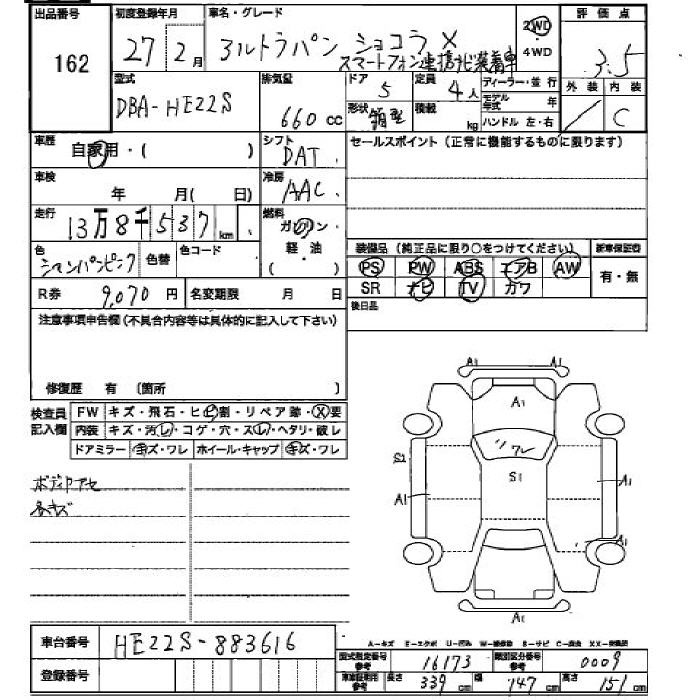 出品番号 初度登録年月 車名・グレード 2WD 評価点
162 27年2月 アルトラパン ショコラ X 4WD 3.5
スマートフォン連携ナビ装着車
型式 排気量 ドア 定員 ディーラー・並行 外装 内装
DBA-HE22S 660cc 5 4人 モデル年式 年 C
形状 箱型 積載 kg ハンドル 左・右
車歴 自家用・( ) シフト DAT セールスポイント(正常に機能するものに限ります)
車検 年 月( 日) 冷房 AAC
走行 13万8千537km 燃料 ガソリン
軽・油
( )
色 シャンパンピンク 色替 色コード
装備品(純正品に限り○をつけてください) 新車保証書
PS PW ABS エアB AW 有・無
SR ナビ TV カワ
R券 9,070円 名変期限 月 日 後日品
注意事項申告欄(不具合内容等は具体的に記入して下さい)
修復歴 有 (箇所 )
検査員記入欄 FW キズ・飛石・ヒビ割・リペア跡・X要
内装 キズ・汚レ・コゲ・穴・スレ・ヘタリ・破レ
ドアミラー キズ・ワレ ホイール・キャップ キズ・ワレ
ボディアセ
各キズ
A1 A1
A1
ワレ
S2 S1
A1 A1
A1
A1
車台番号 HE22S-883616
登録番号
A-キズ E-エクボ U-凹み W-補修跡 S-サビ C-腐食 XX-交換済
型式指定番号 参考 16173 類別区分番号 参考 0009
車検証専用 参考 長さ 339cm 幅 147cm 高さ 151cm